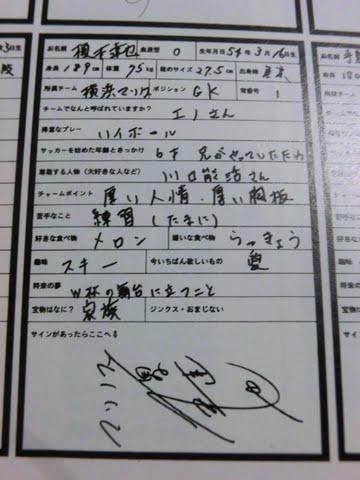 お名前 榎本達也 血液型 O 生年月日 54年3月16日生
身長 189cm 体重 75kg 靴のサイズ 27.5cm 出身地 東京
所属チーム 横浜マリノス ポジション GK 背番号 1
チームでなんと呼ばれていますか? エノさん
得意なプレー ハイボール
サッカーを始めた年齢ときっかけ 6才 兄がやっていたため
尊敬する人物(大好きな人など) 川口能活さん
チャームポイント 厚い人情・厚い胸板
苦手なこと 練習(たまに)
好きな食べ物 メロン 嫌いな食べ物 らっきょう
趣味 スキー 今いちばん欲しいもの 愛
将来の夢 W杯の舞台に立つこと
宝物はなに? 家族 ジンクス・おまじない
サインがあったらここへ